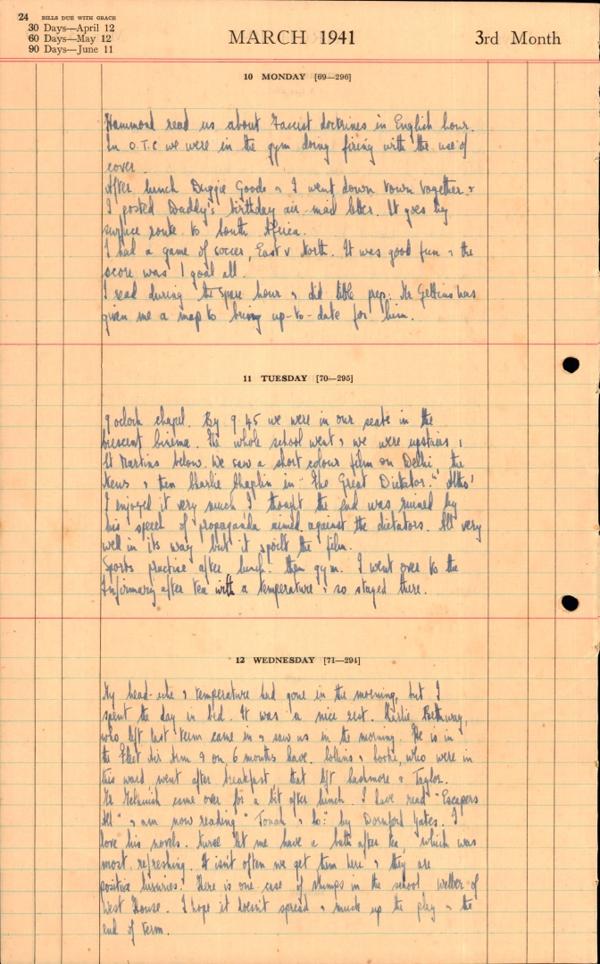 24 BILLS DUE WITH GRACE
30 Days—April 12
60 Days—May 12
90 Days—June 11
MARCH 1941
3rd Month
10 MONDAY [69—296]
Hammond read us about Fascist doctrines in English hour.
In O.T.C we were in the gym doing firing with the use of
cover.
After lunch Duggie Goode & I went down town together &
I posted Daddy's birthday air mail letter. It goes by
surface route to South Africa.
I had a game of soccer, East v North. It was good fun & the
score was 1 goal all.
I read during the spare hour & did bible prep. Mr Gettins has
given me a map to bring up-to-date for him.
11 TUESDAY [70—295]
9 oclock chapel. By 9.45 we were in our seats in the
Crescent Cinema. The whole school went & we were upstairs &
St Martins below. We saw a short colour film on Delhi, the
news & then Charlie Chaplin in "The Great Dictator". Altho'
I enjoyed it very much I thought the end was ruined by
his speech of propaganda aimed against the dictators. All very
well in its way but it spoilt the film.
Sports practice after lunch. then gym. I went over to the
Infirmary after tea with a temperature & so stayed there.
12 WEDNESDAY [71—294]
My head-ache & temperature had gone in the morning, but I
spent the day in bed. It was a nice rest. Charlie
who left last term came in & saw us in the morning. He is in
the Fleet Air Arm & on 6 months leave. Collins & who were in
this ward went after breakfast that left & Taylor.
Mr came over for a bit after lunch. I have read "Escapers
All" & am now reading "Jonah & Co." by Dornford Yates. I
love his novels. Nurse let me have a bath after tea which was
most refreshing. It isn't often we get them here & they are
positive luxuries! There is one case of mumps in the school of
West House. I hope it doesn't spread & muck up the play & the
end of term.